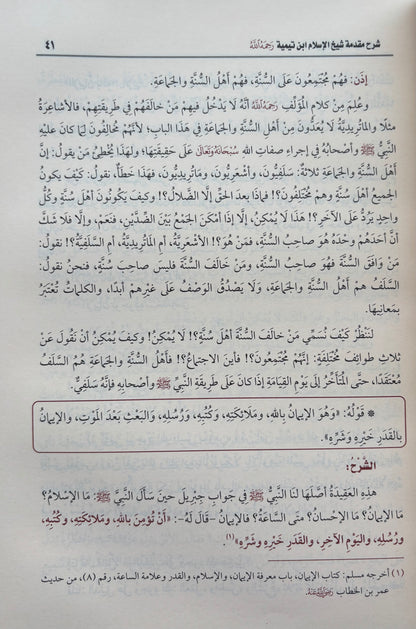 شرح مقدمة شيخ الإسلام ابن تيمية رَحِمَهُ اللَّهُ
٤١
إِذَن: فَهُمْ مُجْتَمِعُونَ عَلَى السُّنَّةِ، فَهُمْ أَهْلُ السُّنَّةِ والجَمَاعَةِ.
وعُلِمَ مِنْ كلامِ المُؤَلِّفِ رَحِمَهُ اللَّهُ أَنَّهُ لَا يَدْخُلُ فِيهِمْ مَنْ خَالَفَهُمْ فِي طَرِيقَتِهِمْ، فالأَشاعِرَةُ
مثلًا والماتُرِيدِيَّةُ لَا يُعَدُّونَ مِنْ أَهْلِ السُّنَّةِ والجَمَاعَةِ فِي هَذَا البابِ؛ لأَنَّهُمْ مُخَالِفُونَ لِمَا كانَ عَليْهِ
النَّبِيُّ ﷺ وأصْحابُهُ فِي إجراءِ صفاتِ اللهِ سُبْحَانَهُ وَتَعَالَى عَلَى حَقِيقَتِهَا؛ ولهَذَا يُخْطِئُ مَنْ يقولُ: إِنَّ
أَهْلَ السُّنَّةِ والجَمَاعَةِ ثلاثةٌ: سَلَفِيُّونَ، وأشْعَرِيُّونَ، ومَاتُرِيدِيُّونَ، فهَذَا خَطَأٌ، نقولُ: كَيْفَ يكونُ
الجميعُ أَهْلَ سُنَّةٍ وهمْ مُخْتَلِفُونَ؟! فماذا بعدَ الحقِّ إلَّا الضَّلالُ؟! وكيفَ يكونُونَ أَهْلَ سُنَّةٍ وكُلُّ
واحِدٍ يردُّ عَلَى الآخَرِ؟! هَذَا لَا يُمْكِنُ، إلَّا إِذَا أمْكَنَ الجَمْعُ بَيْنَ الضِّدَّيْنِ، فنَعَمْ، وإلَّا فلَا شَكَّ
أنَّ أحَدَهُمْ وحْدَهُ هُوَ صاحِبُ السُّنَّةِ، فمَنْ هُوَ؟! الأَشْعَرِيَّةُ، أمِ الماتُرِيدِيَّةُ، أمِ السَّلَفِيَّةُ؟! نقولُ:
مَنْ وَافَقَ السُّنَّةَ فهُوَ صاحِبُ السُّنَّةِ، ومَنْ خَالَفَ السُّنَّةَ فليسَ صاحِبَ سُنَّةٍ، فنحنُ نقولُ:
السَّلَفُ همْ أَهْلُ السُّنَّةِ والجَمَاعَةِ، ولَا يَصْدُقُ الوَصْفُ عَلَى غَيْرِهِمْ أبدًا، والكلماتُ تُعْتَبَرُ
بمَعَانِيهَا.
لنَنْظُرْ كَيْفَ نُسَمِّي مَنْ خَالَفَ السُّنَّةَ أَهْلَ سُنَّةٍ؟! لَا يُمْكِنُ! وكيفَ يُمْكِنُ أنْ نَقُولَ عَنْ
ثلاثِ طوائِفَ مُخْتَلِفَةٍ: إِنَّهُمْ مُجْتَمِعُونَ؟! فأينَ الاجتماعُ؟! فأَهْلُ السُّنَّةِ والجَمَاعَةِ هُمُ السَّلَفُ
مُعْتَقَدًا، حتى المُتَأَخِّرُ إِلَى يَوْمِ القِيَامَةِ إِذَا كانَ عَلَى طَرِيقَةِ النَّبِيِّ ﷺ وأصحابِهِ فإنَّهُ سَلَفِيٌّ.
* قَوْلُهُ: «وَهُوَ الإِيمَانُ باللهِ، ومَلَائِكَتِهِ، وكُتُبِهِ، ورُسُلِهِ، والبَعْثِ بَعْدَ المَوْتِ، والإيمَانُ
بالقَدَرِ خَيْرِهِ وشَرِّهِ».
الشَّرْحُ:
هَذِهِ العَقِيدَةُ أصَّلَهَا لنَا النَّبِيُّ ﷺ فِي جوابِ جِبْرِيلَ حينَ سَأَلَ النَّبِيَّ ﷺ: مَا الإِسْلامُ؟
مَا الإِيمَانُ؟ مَا الإِحْسَانُ؟ متَى السَّاعَةُ؟ فالإيمَانُ -قَالَ لَهُ-: «أَنْ تُؤْمِنَ باللهِ، ومَلَائِكَتِهِ، وكُتُبِهِ،
ورُسُلِهِ، واليَوْمِ الآخِرِ، والقَدَرِ خَيْرِهِ وشَرِّهِ»(١).
(١) أخرجه مسلم: كتاب الإيمان، باب معرفة الإيمان، والإسلام، والقدر وعلامة الساعة، رقم (٨)، من حديث
عمر بن الخطاب رَضِيَ اللَّهُ عَنْهُ.